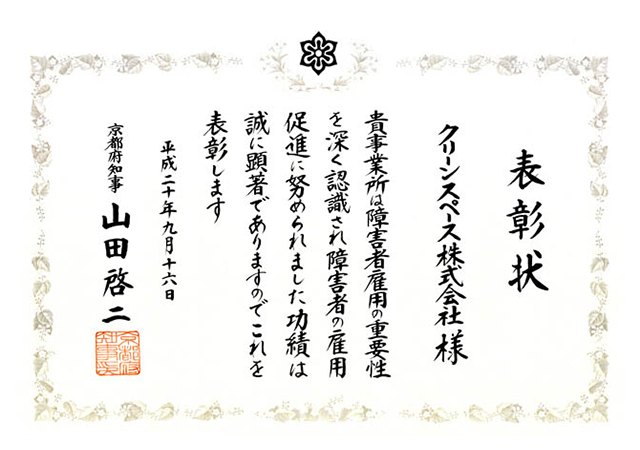 表彰状
クリーンスペース株式会社 様
貴事業所は障害者雇用の重要性
を深く認識され障害者の雇用
促進に努められました功績は
誠に顕著でありますのでこれを
表彰します
平成二十年九月十六日
京都府知事 山田啓二
京都府知事印